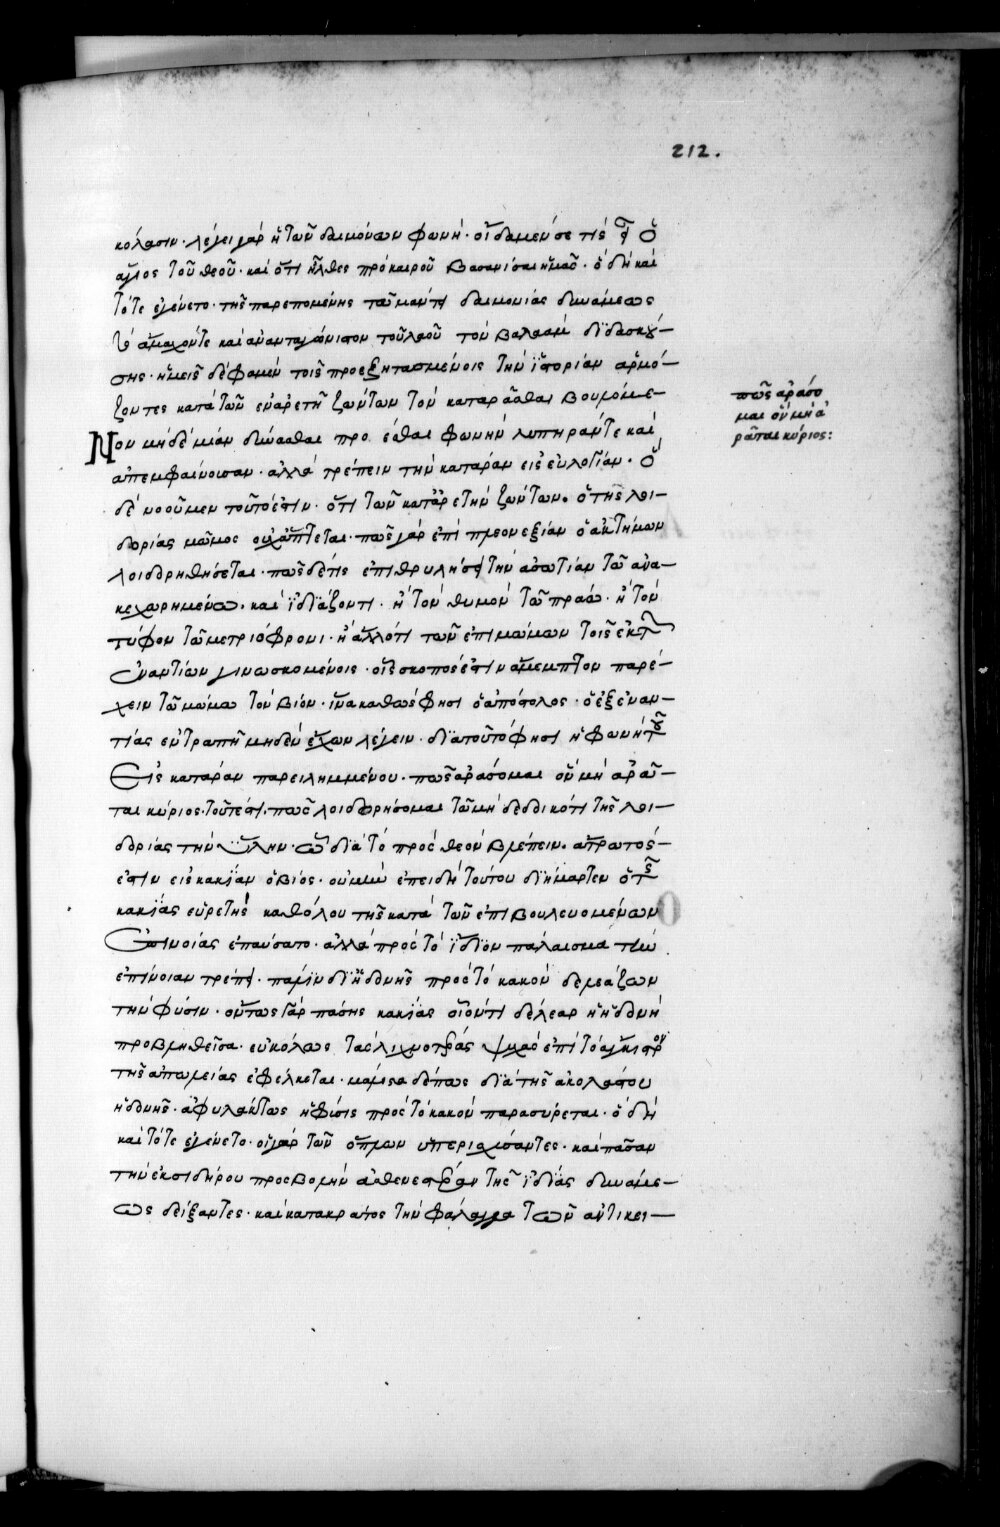 212.
κόλασιν· λέγει γὰρ ἡ τῶν δαιμόνων φωνή· οἶδαμέν σε τίς εἶ ὁ
ἅγιος τοῦ θεοῦ· καὶ ὅτι ἦλθες πρὸ καιροῦ βασανίσαι ἡμᾶς· ὃ δὴ καὶ
τότε ἐγένετο· τῆς παρεπομένης τῶ μάντει δαιμονίας δυνάμεως
τὸ ἄμαχόν τε καὶ ἀνανταγώνιστον τοῦ λαοῦ τὸν βαλαὰμ διδασκού–
σης· ἡμεῖς δέ φαμεν τοῖς προεξητασμένοις τὴν ἱστορίαν ἁρμό–
ζοντες κατὰ τῶν ἐν ἀρετῆ ζώντων τὸν καταρᾶσθαι βουλόμε–
Νον μηδεμίαν δύνασθαι προέσθαι φωνὴν λυπηράν τε καὶ
ἀπεμφαίνουσαν· ἀλλὰ τρέπειν τὴν κατάραν εἰς εὐλογίαν· ὃ
δὲ νοοῦμεν τοῦτό ἐστιν· ὅτι τῶν κατ' ἀρετὴν ζώντων· ὁ τῆς λοι–
δορίας μῶμος οὐχ ἅπτεται· πῶς γὰρ ἐπὶ πλεονεξίαν ὁ ἀκτήμων
λοιδορηθήσεται· πῶς δέ τις ἐπιθρυλήσει τὴν ἀσωτίαν τῶ ἀνα–
κεχωρημένω· καὶ ἰδιάζοντι· ἢ τὸν θυμὸν τῶ πράω· ἢ τὸν
τύφον τῶ μετριόφρονι· ἢ ἄλλό τι τῶν ἐπιμώμων τοῖς ἐκ τῶν
ἐναντίων γινωσκομένοις· οἷς σκοπός ἐστιν ἄμεμπτον παρέ–
χειν τῶ μώμω τὸν βίον· ἵνα καθώς φησι ὁ ἀπόστολος· ὁ ἐξ ἐναν–
τίας ἐντραπῆ μηδὲν ἔχων λέγειν· διὰ τοῦτό φησι ἡ φωνὴ τοῦ
Εἰς κατάραν παρειλημμένου· πῶς ἀράσομαι ὃν μὴ ἀρᾶ–
ται κύριος· τοῦτέστι· πῶς λοιδορήσομαι τῶ μὴ δεδωκότι τῆς λοι–
δορίας τὴν ὕλην· ᾧ διὰ τὸ πρὸς θεὸν βλέπειν· ἄτρωτός–
ἐστιν εἰς κακίαν ὁ βίος· οὐ μὴν ἐπειδὴ τούτου διήμαρτεν ὁ τῆς
κακίας εὑρετὴς καθόλου τῆς κατὰ τῶν ἐπιβουλευομένων
Ἐπινοίας ἐπαύσατο· ἀλλὰ πρὸς τὸ ἴδιον πάλαισμα τὴν
ἐπίνοιαν τρέπει· πάλιν δι' ἡδονῆς πρὸς τὸ κακὸν δελεάζων
τὴν φύσιν· οὕτως γὰρ πάσης κακίας οἷόν τι δέλεαρ ἡ ἡδονὴ
προβληθεῖσα· εὐκόλως τὰς λιχνοτέρας ψυχὰς ἐπὶ τὸ ἄγκιστρον
τῆς ἀπωλείας ἐφέλκεται· μάλιστα δέ πως διὰ τῆς ἀκολάστου
ἡδονῆς· ἀφυλάκτως ἡ φύσις πρὸς τὸ κακὸν παρασύρεται· ὃ δὴ
καὶ τότε ἐγένετο· οἱ γὰρ τῶν ὅπλων ὑπερισχύσαντες· καὶ πᾶσαν
τὴν ἐκ σιδήρου προσβολὴν ἀσθενεστέραν τῆς ἰδίας δυνάμε–
ως δείξαντες· καὶ κατὰ κράτος τὴν φάλαγγα τῶν ἀντικει–
πῶς ἀράσο
μαι ὃν μὴ ἀ
ρᾶται κύριος: